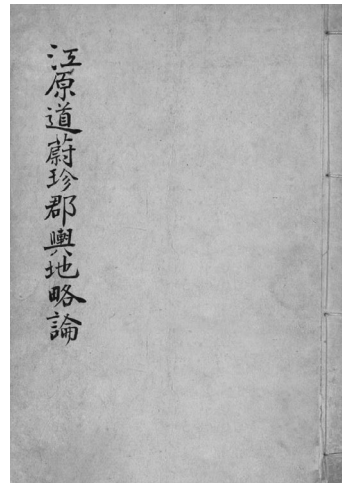 江原道蔚珍郡輿地略論